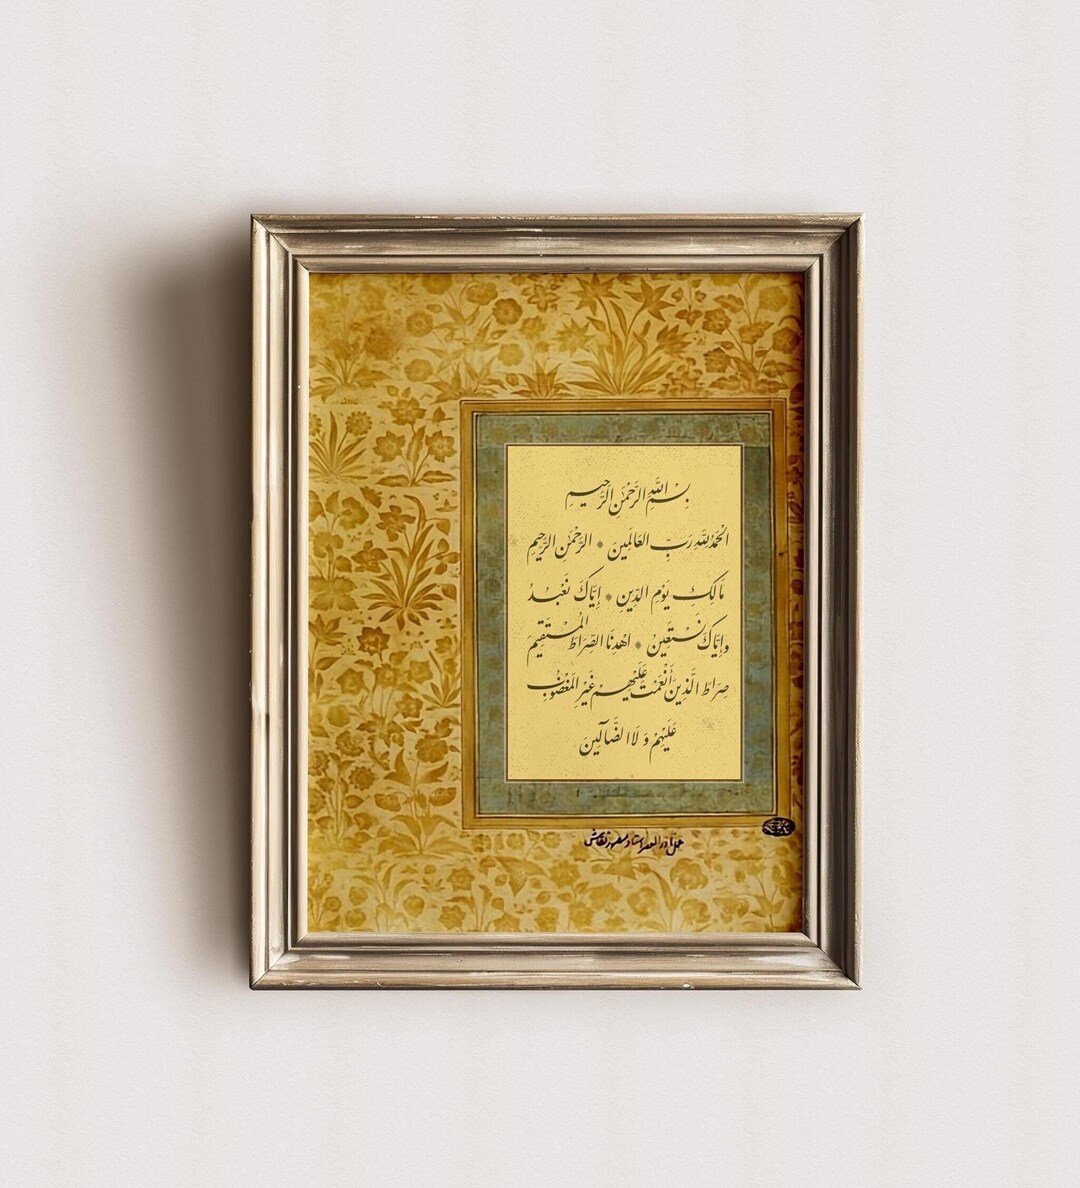 بِسْمِ اللّٰهِ الرَّحْمٰنِ الرَّحِيمِ
الْحَمْدُ لِلّٰهِ رَبِّ العَالَمِينَ * الرَّحْمٰنِ الرَّحِيمِ
مَالِكِ يَوْمِ الدِّينِ * إِيَّاكَ نَعْبُدُ
وَإِيَّاكَ نَسْتَعِينُ * اهْدِنَا الصِّرَاطَ الْمُسْتَقِيمَ
صِرَاطَ الَّذِينَ أَنْعَمْتَ عَلَيْهِمْ غَيْرِ المَغْضُوبِ
عَلَيْهِمْ وَلَا الضَّآلِّينَ
عمل نادر العصر استاد منصور نقاش